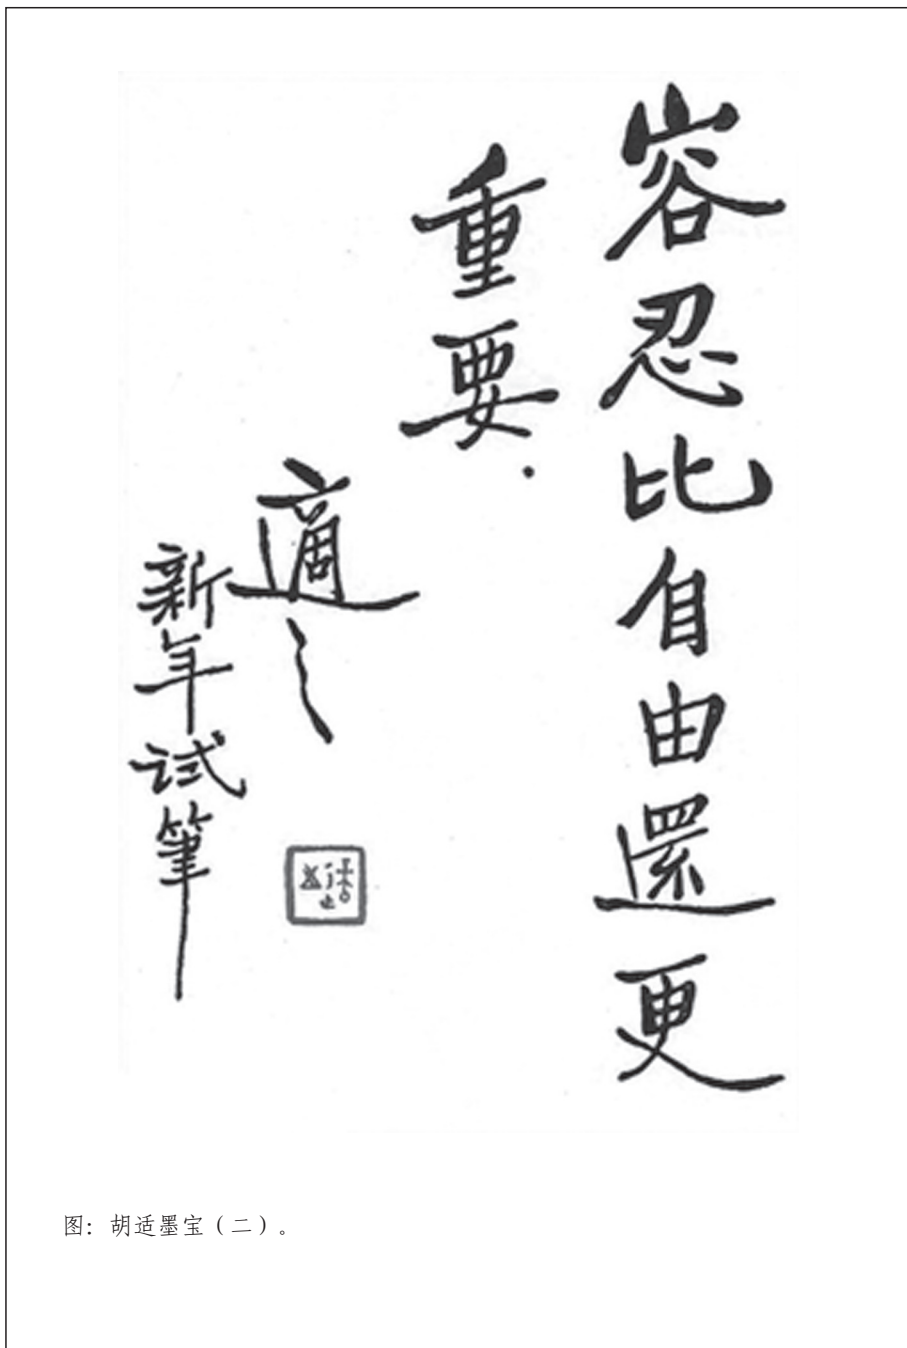 容忍比自由還更
重要.
適之
新年试筆
图：胡适墨宝（二）。